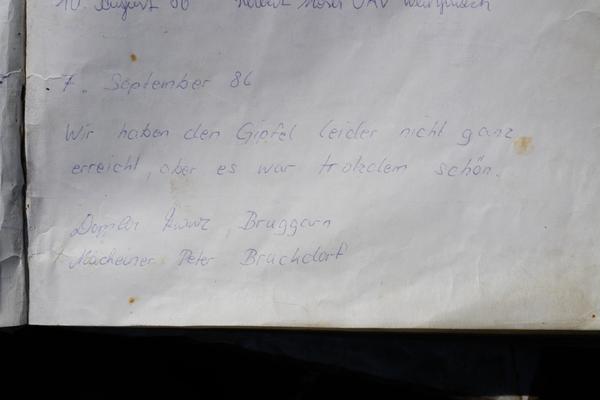 10. August 86 ÖAV
7. September 86
Wir haben den Gipfel leider nicht ganz
erreicht, aber es war trotzdem schön.
Franz, Bruggarn
Peter Bruckdorf